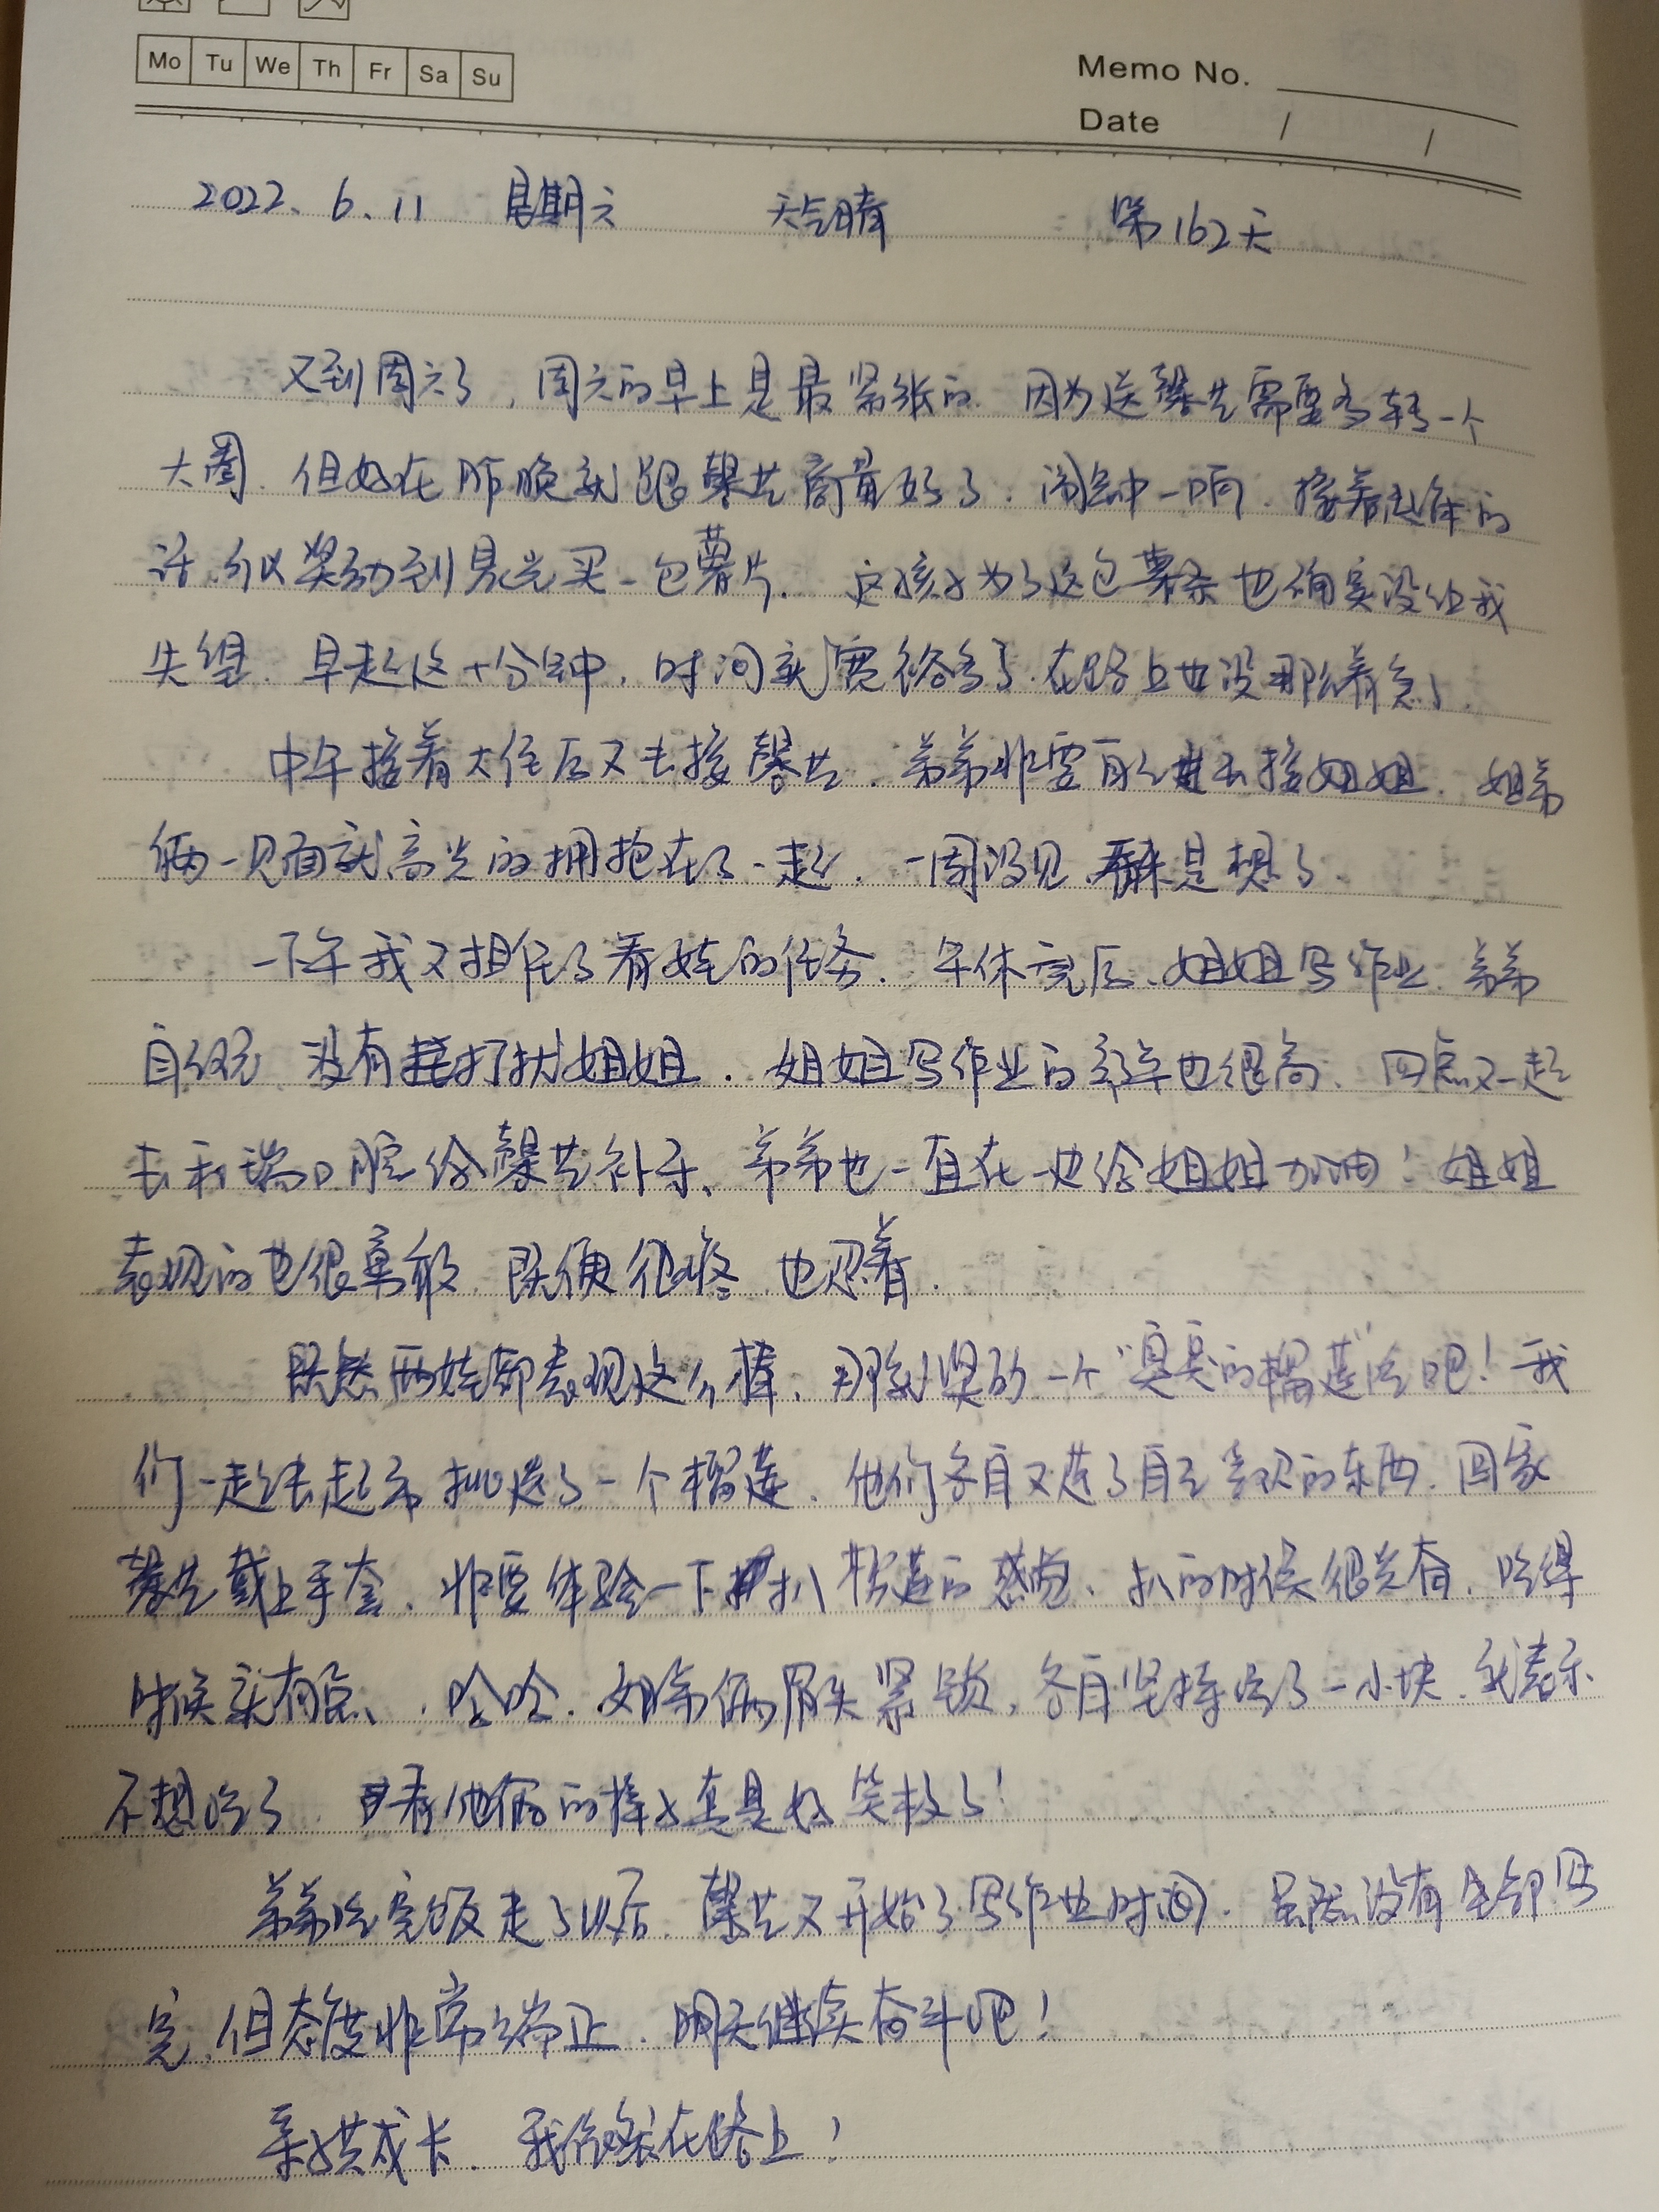 Mo Tu We Th Fr Sa Su
Memo No.
Date / /
2022.6.11 星期六 天气晴 第162天
又到周六了,周六的早上是最紧张的.因为送馨艺需要多转一个
大圈.但好在昨晚就跟馨艺商量好了.闹钟一响.接着起床的
话,可以奖励到晨光买一包薯片.这孩子为了这包薯条也确实没让我
失望.早起这十分钟,时间就宽裕多了.在路上也没那么着急了.
中午接着大任后又去接馨艺.弟弟非要自己进去接姐姐.姐弟
俩一见面就高兴的拥抱在了一起.一周没见,看来是想了.
下午我又担任了看娃的任务.午休完后、姐姐写作业.弟弟
自己玩 没有打扰姐姐.姐姐写作业的效率也很高.四点又一起
去和瑞口腔给馨艺补牙、弟弟也一直在一边给姐姐加油!姐姐
表现的也很勇敢.既便很疼,也忍着.
既然两娃都表现这么棒、那就奖励一个“臭臭的榴莲”吃吧!我
们一起去超市挑选了一个榴莲.他们各自又选了自己喜欢的东西.回家
馨艺戴上手套、非要体验一下扒榴莲的感觉、扒的时候很兴奋,吃得
时候就有点、.哈哈.姐弟俩眉头紧锁,各自坚持吃了一小块.就表示
不想吃了.看他俩的样子真是好笑极了!
弟弟吃完饭走了以后.馨艺又开始了写作业时间.虽然没有全部写
完,但态度非常端正.明天继续奋斗吧!
亲子共成长.我们在路上!